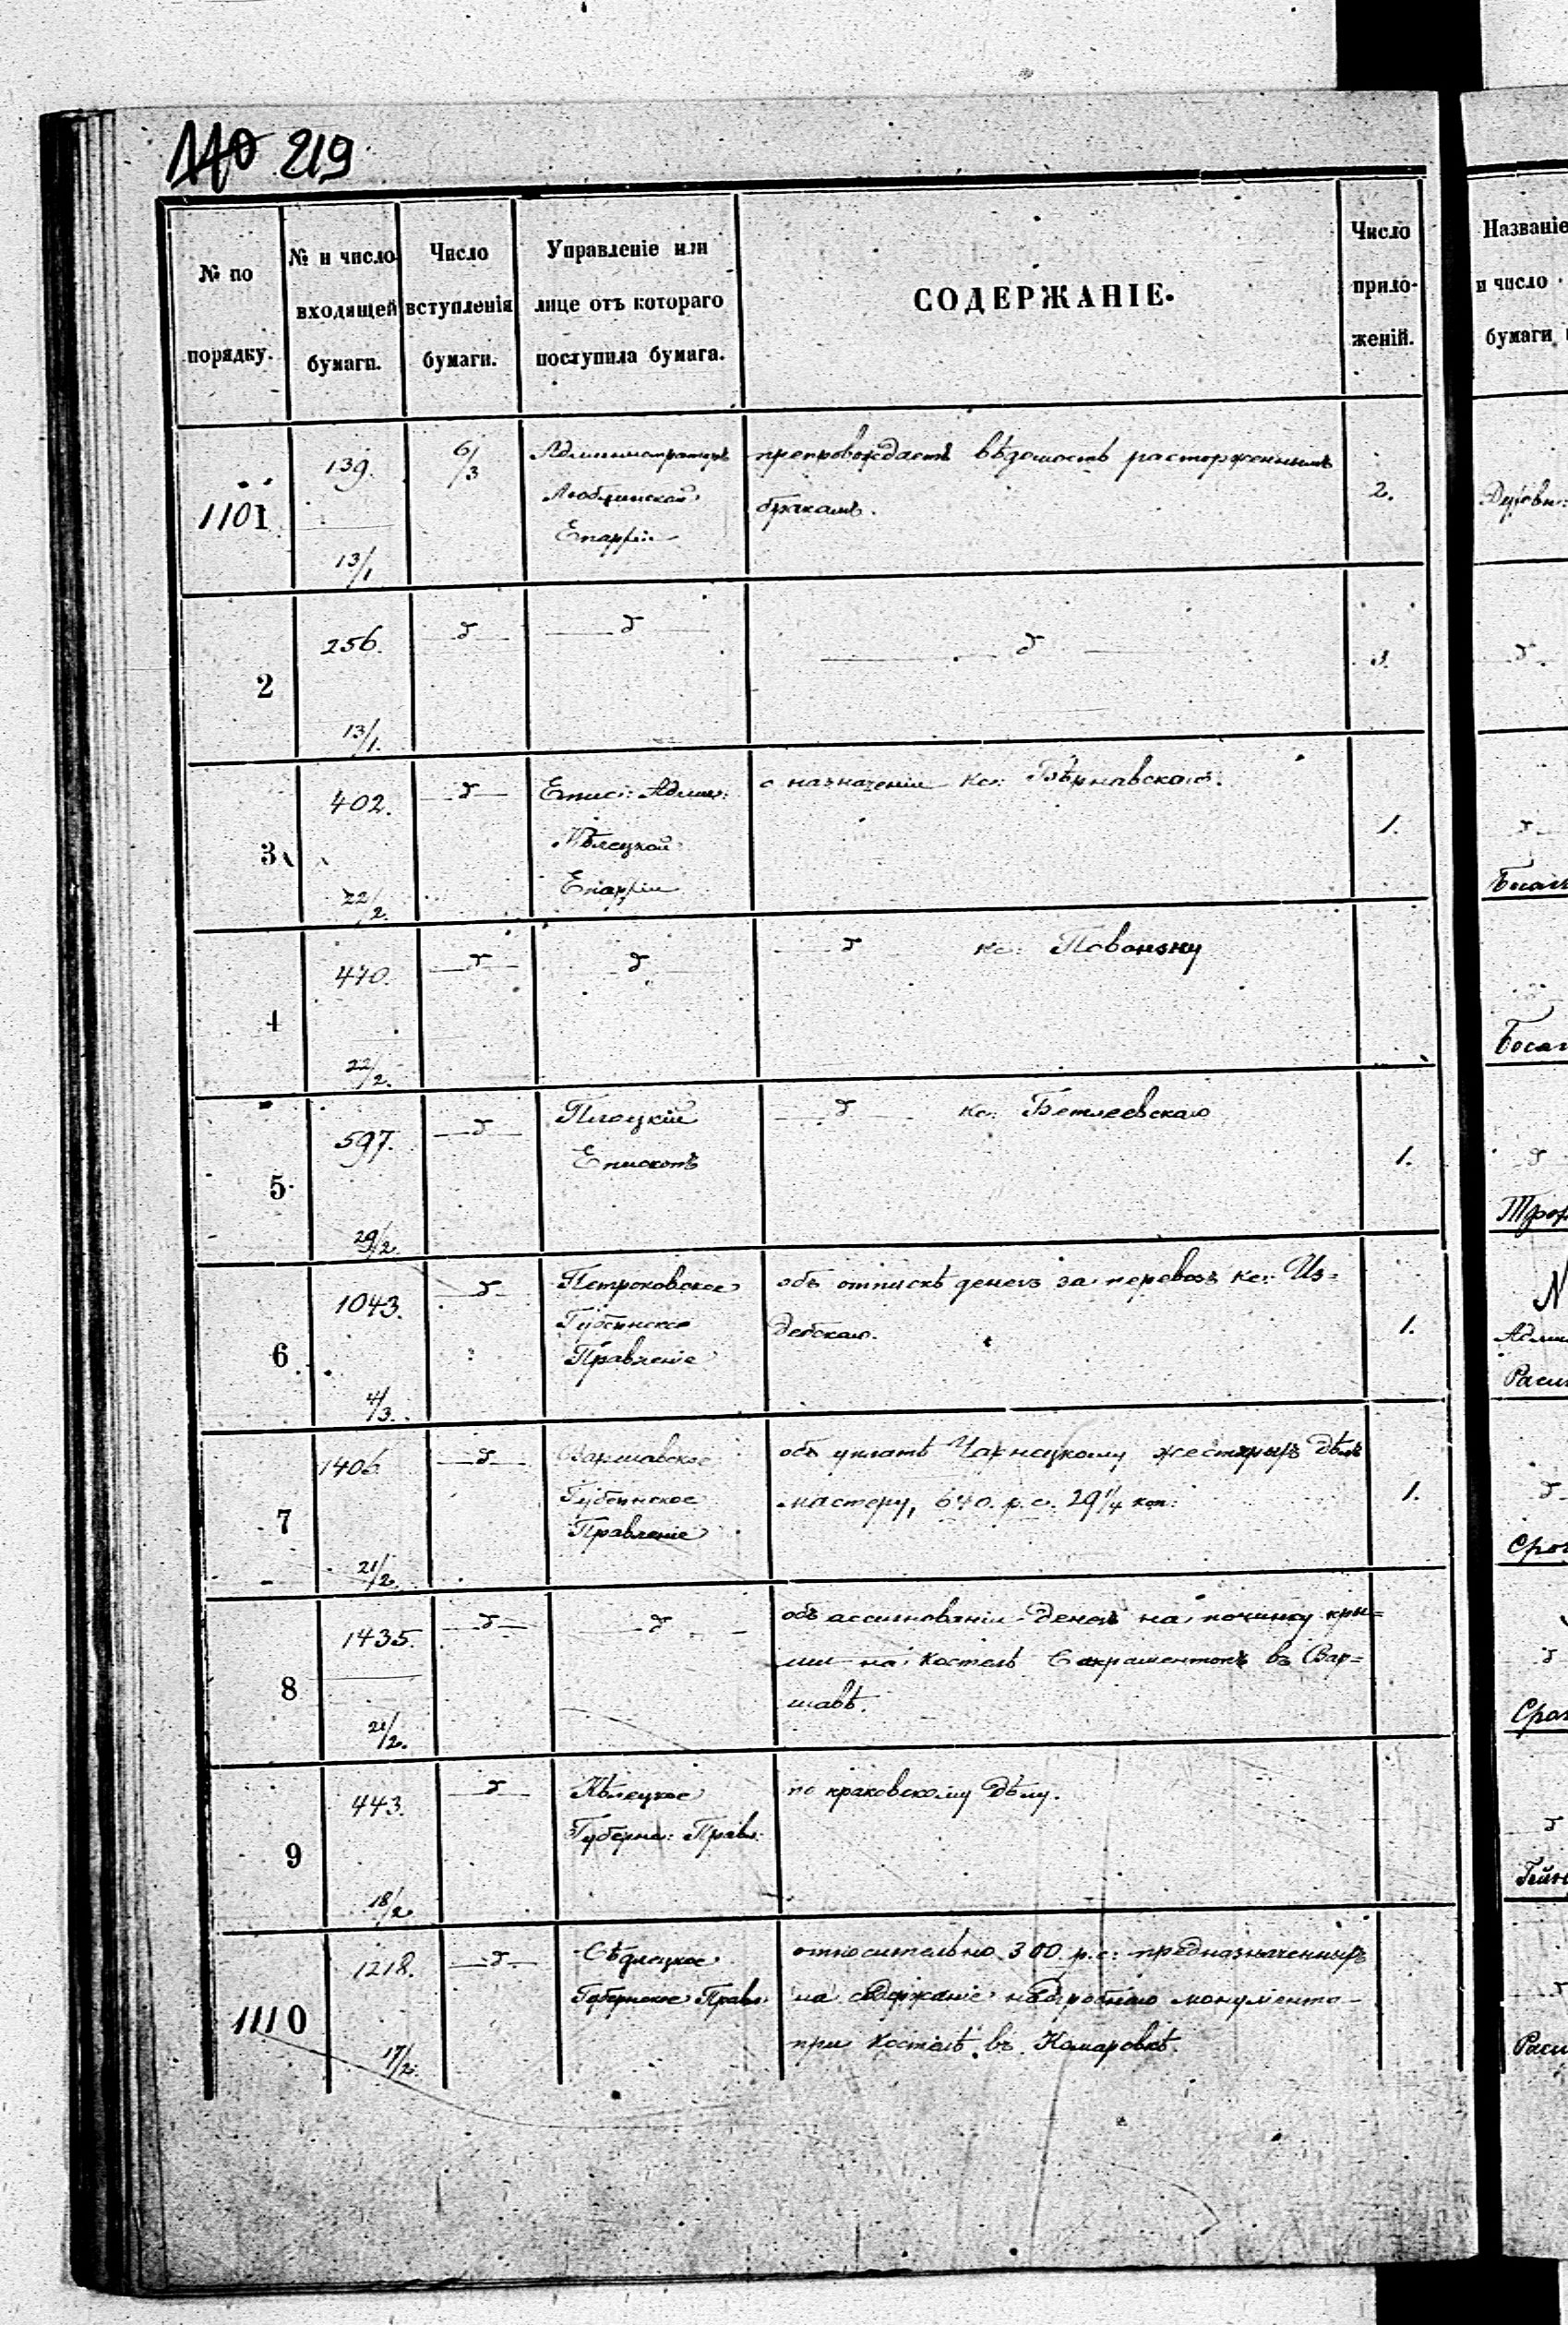 110 219
№ по порядку.
№ и число входящей бумаги.
Число вступленія бумаги.
Управленіе или лице отъ котораго поступила бумага.
СОДЕРЖАНІЕ.
Число приложеній.
1101
139.
13/1
6/3
Администраторъ
Люблинской
Епархіи
препровождаетъ вѣдомость расторженнымъ
бракамъ.
2.
2
256.
13/1.
д
д
д
3
402.
22/2.
д
Епис: Админ:
Кѣлецкой
Епархіи
о назначеніи кс:
1.
4
440.
22/2.
д
д
д кс: Повонзку
5
597.
29/2.
д
Плоцкій
Епископъ
д кс: Бетлеевскаго
1.
6
1043.
4/3.
д
Петроковское
Губернское
Правленіе
объ отпускѣ денегъ за перевозъ кс: Из=
дебскаго.
1.
7
1406
21/2.
д
Варшавское
Губернское
Правленіе
объ уплатѣ Чарнецкому жестяныхъ дѣлъ
мастеру, 640. р. с. 29 1/4 коп:
1.
8
1435.
21/2.
д
д
объ ассигнованіи денегъ на починку кры=
ши на костелѣ Сакраментокъ въ Вар=
шавѣ.
9
443.
18/2.
д
Кѣлецкое
Губерн: Правл:
по краковскому дѣлу.
1110
1218.
17/2.
д
Сѣдлецкое
Губернское Правл:
относительно 300 р. с: предназначенныхъ
на содержаніе надгробнаго монумента
при костелѣ въ Комаровкѣ.
Названіе
и число
бумаги